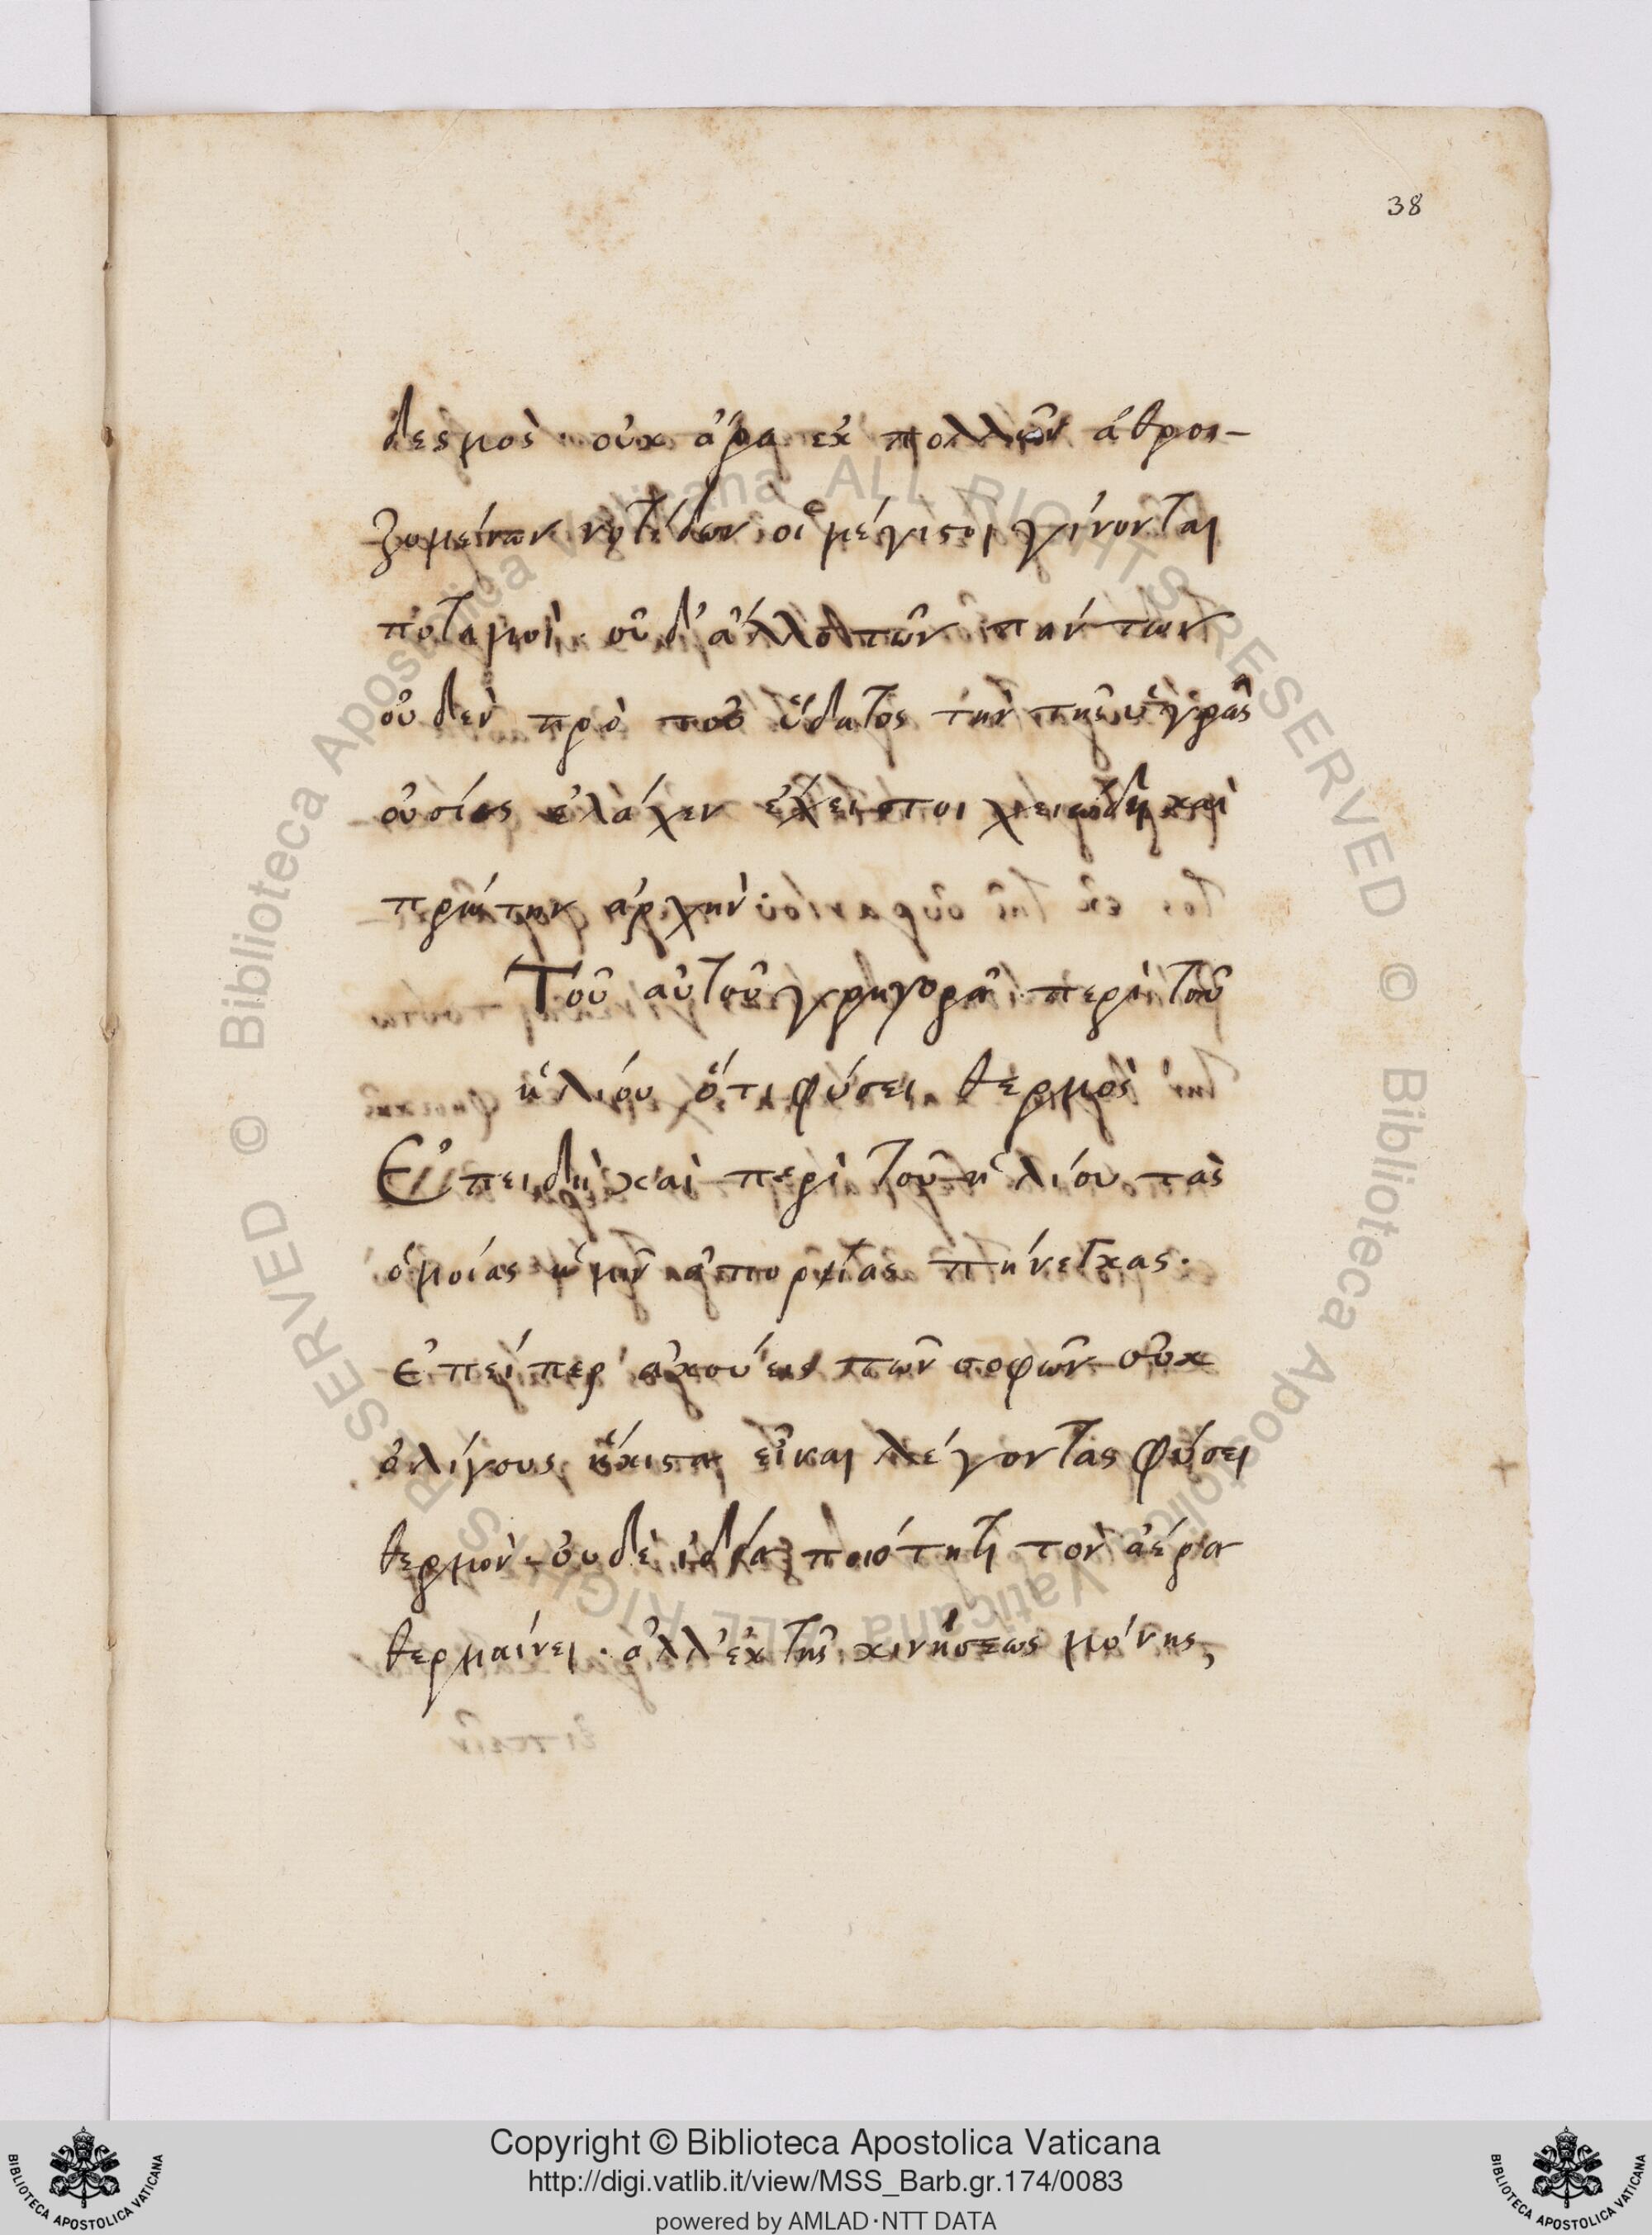 38
δεσμὸς οὐκ ἄρα ἐκ πολλῶν ἀθροι-
ζομένων νοτίδων οἱ μέγιστοι γίνονται
ποταμοὶ. οὐδ' ἄλλο τῶν πάντων
οὐδὲν πρὸ τοῦ ὕδατος τὴν τῆς ὑγρᾶς
οὐσίας ἐλάχεν
πρώτην ἀρχὴν:
Τοῦ αὐτοῦ γρηγορᾶ περὶ τοῦ
ἡλίου ὅτι φύσει θερμὸς
Ἐπειδὴ καὶ περὶ τοῦ ἡλίου τὰς
ὁμοίας ἡμῖν ἀπορίας
ἐπείπερ ἀκούεις τῶν σοφῶν οὐκ
ὀλίγους ἥκιστα εἶναι λέγοντας φύσει
θερμὸν. οὐδὲ ἰδίᾳ ποιότητι τὸν ἀέρα
θερμαίνει. ἀλλ' ἐκ τῆς κινήσεως μόνης,
© Biblioteca Apostolica Vaticana ALL RIGHTS RESERVED
© Biblioteca Apostolica Vaticana ALL RIGHTS RESERVED
Copyright © Biblioteca Apostolica Vaticana
http://digi.vatlib.it/view/MSS_Barb.gr.174/0083
powered by AMLAD·NTT DATA
BIBLIOTECA APOSTOLICA VATICANA
BIBLIOTECA APOSTOLICA VATICANA